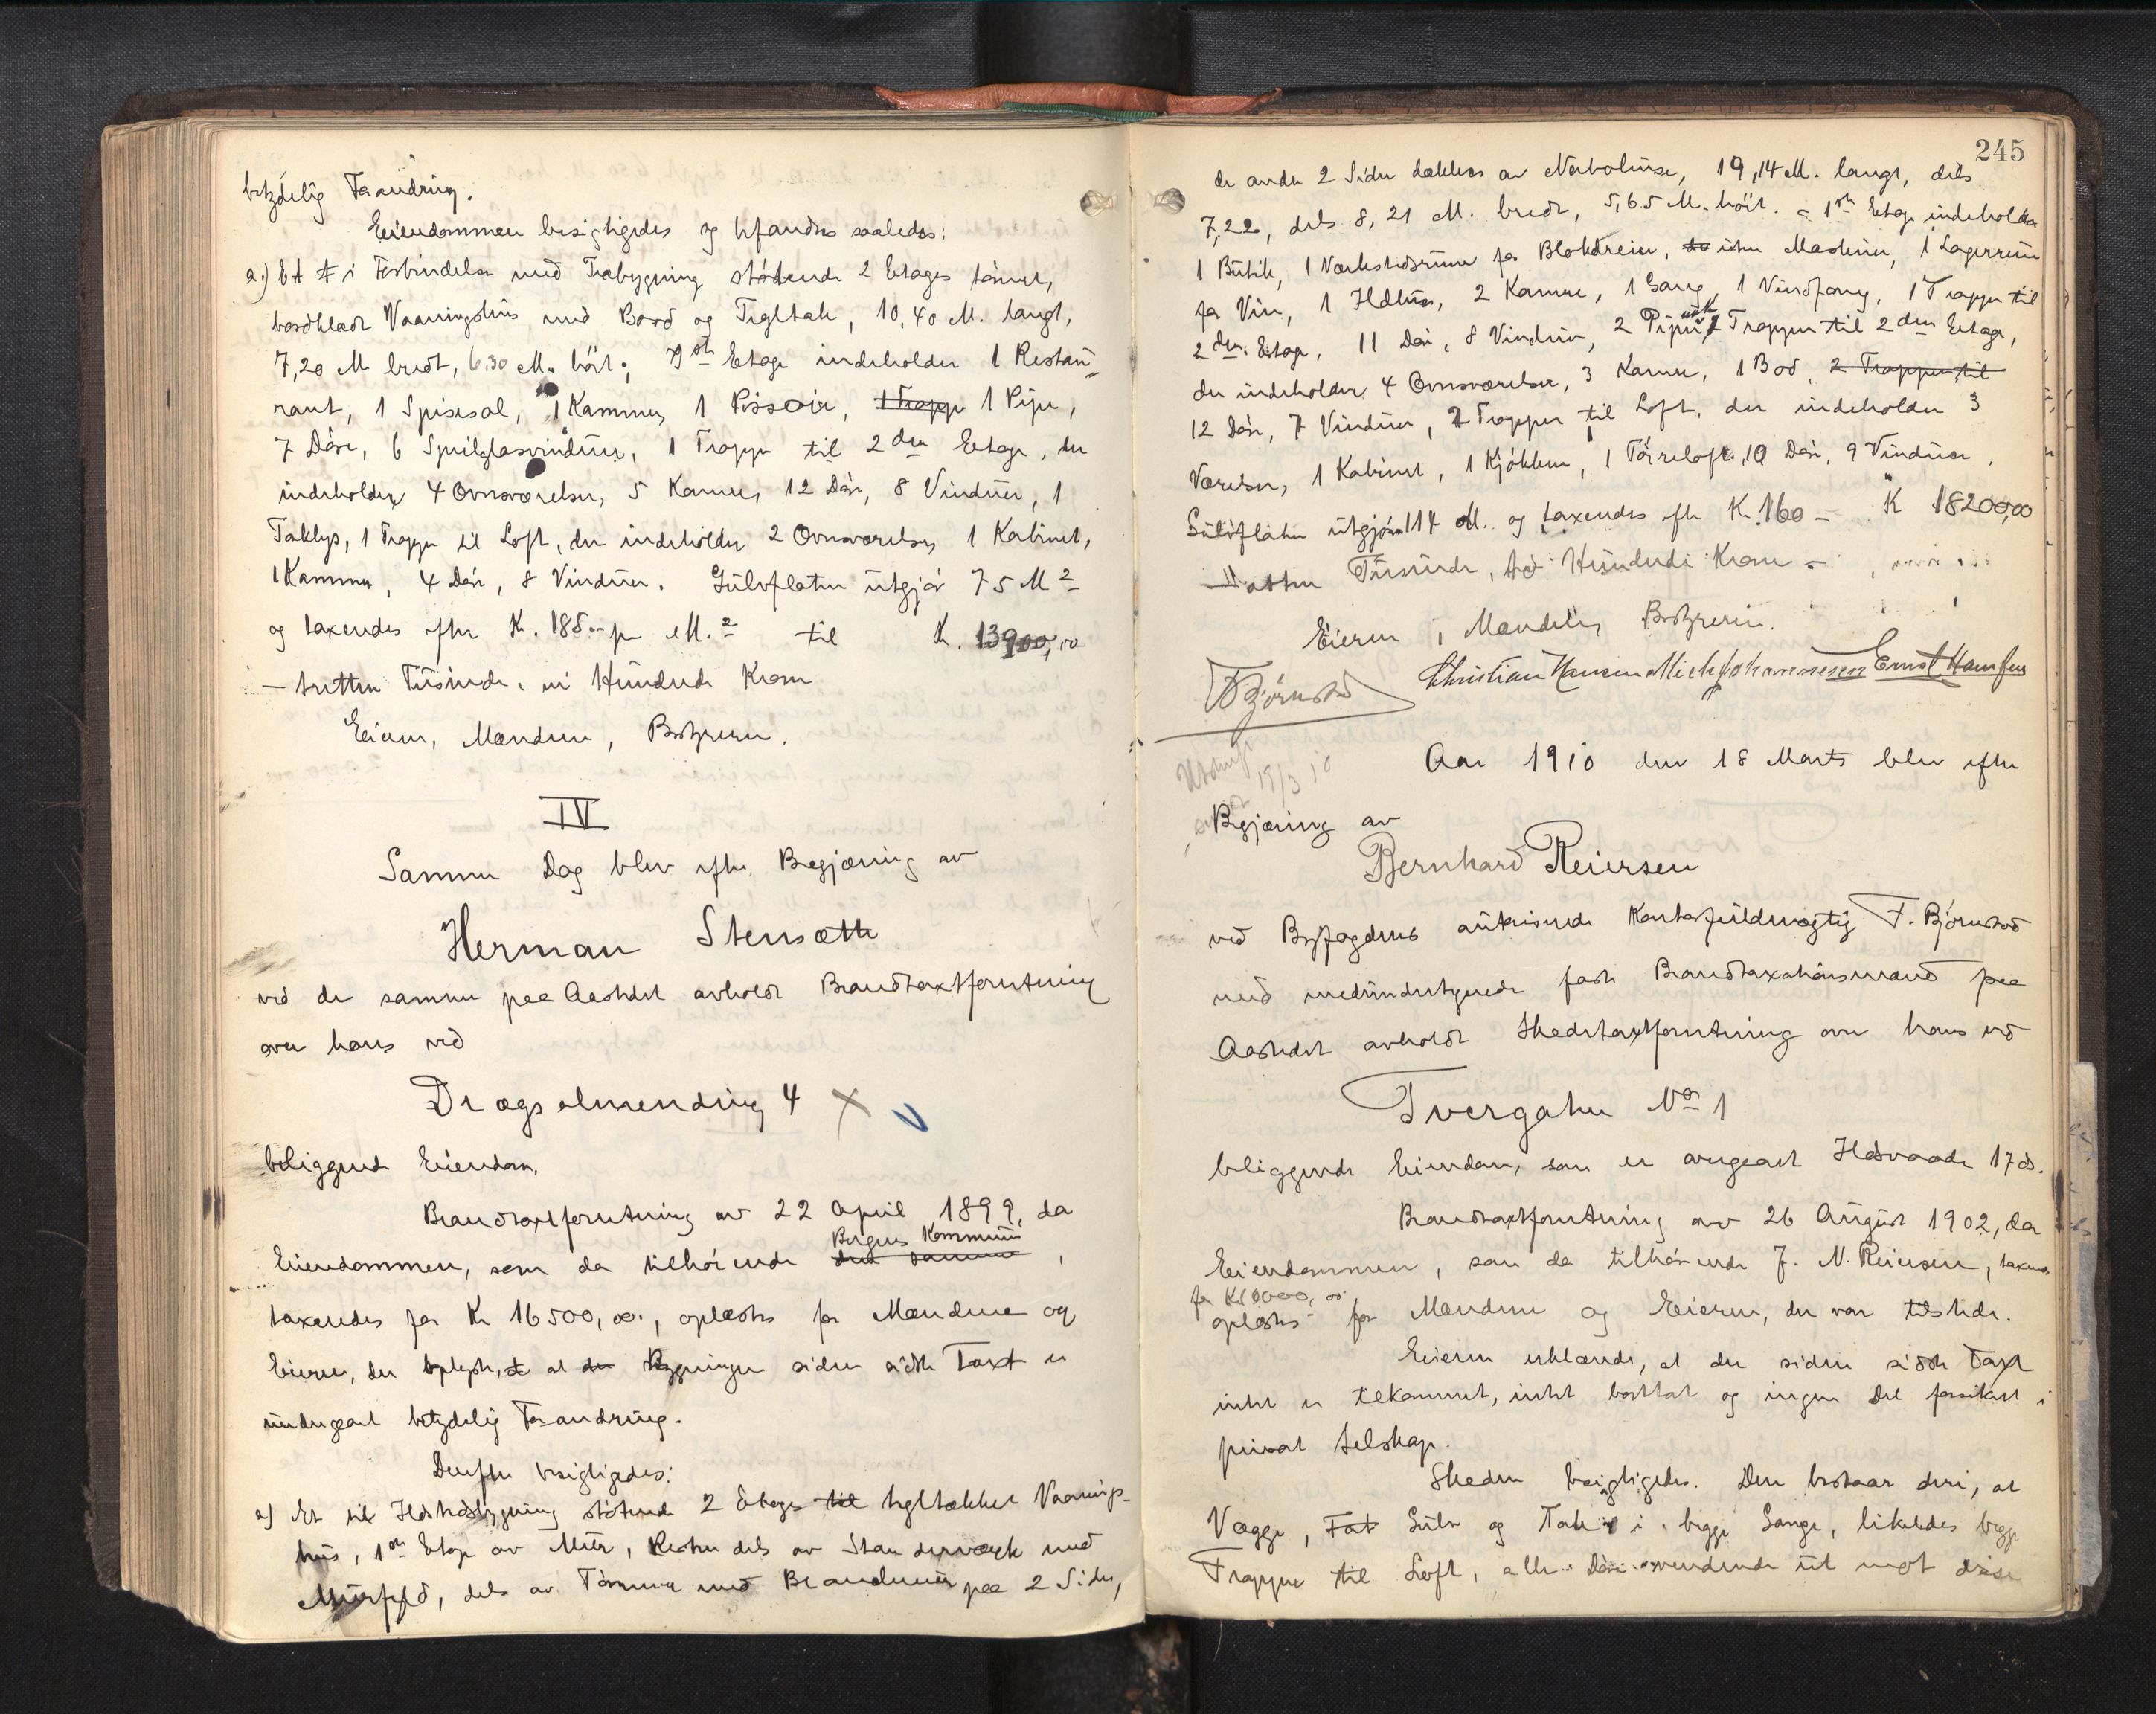 betydelig Forandring.
Eiendommen besigtigedes og befandtes saaledes:
a.) Et i Forbindelse med Træbygning stötende 2 Etages tömret,
bordklædt Vaaningshus med Bord og Tegltak, 10,40 M. langt,
7,20 M bredt, 6,30 M. höit; 1ste Etage indeholder 1 Restau-
rant, 1 Spisesal, 1 Kammer, 1 Pissoir, 1 Trapp 1 Pipe,
7 Döre, 6 Speilglasvinduer, 1 Trappe til 2den Etage, der
indeholder 4 Ovnsværelser, 5 Kamre, 12 Döre, 8 Vinduer, 1
Taklys, 1 Trappe til Loft, der indeholder 2 Ovnsværelser, 1 Kabinet,
1 Kammer, 4 Döre, 8 Vinduer. Gulvflaten utgjör 75 M2
og taxeredes efter K. 185.- pr M.2 til K. 13900,00
- tretten Tusinde, ni Hundrede Kroner
Eieren, Mændene, Bestyreren.
IV
Samme Dag blev efter Begjæring av
Herman Stensæth
ved de samme paa Aastedet avholdt Brandtaxtforretning
over hans ved
Drægsalmending 4
beliggende Eiendom.
Brandtaxtforretning av 22 April 1899, da
Bergens Kommune
Eiendommen, som da tilhörende den samme,
taxeredes for Kr 16500,00., oplæstes for Mændene og
Eieren, der oplyste, at Bygningen siden sidste Taxt er
undergaat betydelig Forandring.
Derefter besigtigedes:
a) Et til stötende 2 Etages til tegltækket Vaanings-
hus, 1ste Etage av Mur, Resten dels av Standerværk med
Murfyld, dels av Tömmer med Brandmur paa 2 Sider,
245
de andre 2 Sider dækkes av Nabohuse, 19,14 M. langt, dels
7,22, dels 8,21 M. bredt, 5,65 M. höit. - 1ste Etage indeholder
1 Butik, 1 Værkstedsrum for Blokdreier, uten Maskiner, 1 Lagerrum
for Vin, 1 Ildhus, 2 Kamre, 1 Gang, 1 Vindfang, 1 Trappe til
2den Etage, 11 Döre, 8 Vinduer, 2 Piper, Trapper til 2den Etage,
der indeholder 4 Ovnsværelser, 3 Kamre, 1 Bod, 2 Trapper til
12 Döre, 7 Vinduer, 2 Trapper til Loft, der indeholder 3
Værelser, 1 Kabinet, 1 Kjökken, 1 Törreloft, 10 Döre, 9 Vinduer.
Gulvflaten utgjör 114 M. og taxeredes efter K. 160 - K 18200,00
- atten Tusinde, to Hundrede Kroner -
Eieren, Mændene, Bestyreren.
F Björnstad Christian Hansen Mich Johannessen Ernst Hansen
Utskrift 19/3 10
Aar 1910 den 18 Marts blev efter
Begjæring av
Bernhard Reiersen
ved Byfogdens autoriserede Kontorfuldmægtig F. Björnstad
med medundertegnede faste Brandtaxationsmænd paa
Aastedet avholdt Skadetaxtforretning over hans ved
Tvergaten No 1
beliggende Eiendom, som er overgaat Ildsvaade 17 ds.
Brandtaxtforretning av 26 August 1902, da
Eiendommen, som da tilhörende J. N. Reiersen, taxeredes
for K 10000,00
oplæstes for Mændene og Eieren, der var tilstede.
Eieren erklærede, at der siden sidste Taxt
intet er tilkommet, intet borttat og ingen Del forsikret i
privat Selskap.
Skaden besigtigedes. Den bestaar deri, at
Vægge, Gulv og Tak i begge Gange, likeledes begge
Trapper til Loft, alle Döre vendende ut mot disse